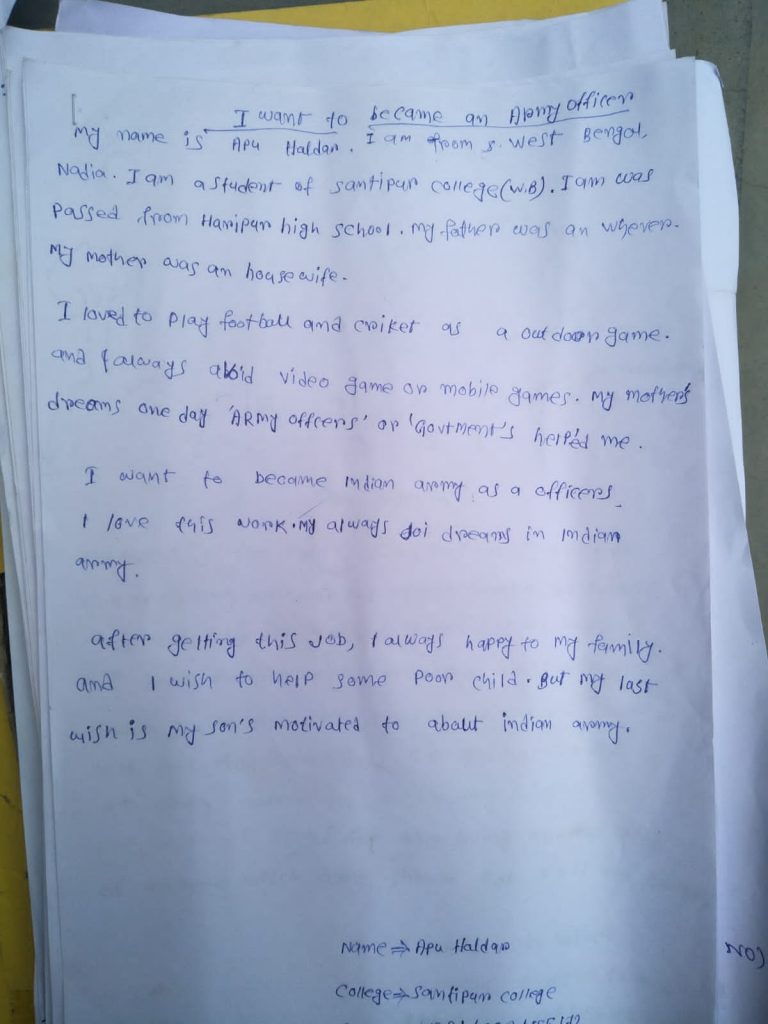 I want to became an Army officer
My name is Apu Haldar. I am from s. West Bengal,
Nadia. I am a student of santipur college(W.B). I am was
passed from Haripur high school. my father was an whever.
My mother was an housewife.
I loved to play football and criket as a outdoor game.
and I always aboid video game or mobile games. my mother's
dreams one day 'ARmy offcers' or 'Govtment's helped me.
I want to became indian army as a officers
I love this work. my always joi dreams in indian
army.
after getting this Job, I always happy to my family.
and I wish to help some poor child. But my last
wish is my son's motivated to about indian army.
Name ⇒ Apu Haldar
College ⇒ Santipur college